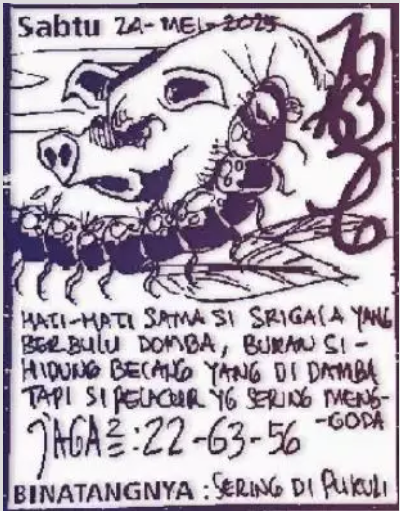 Sabtu 24-MEI-2025
HATI-HATI SAMA SI SRIGALA YANG
BERBULU DOMBA, BUKAN SI-
HIDUNG BECANG YANG DI DAMBA
TAPI SI PELACUR YG SERING MENG-
-GODA
JAGA2 = : 22-63-56
BINATANGNYA : SERING DI PUKULI